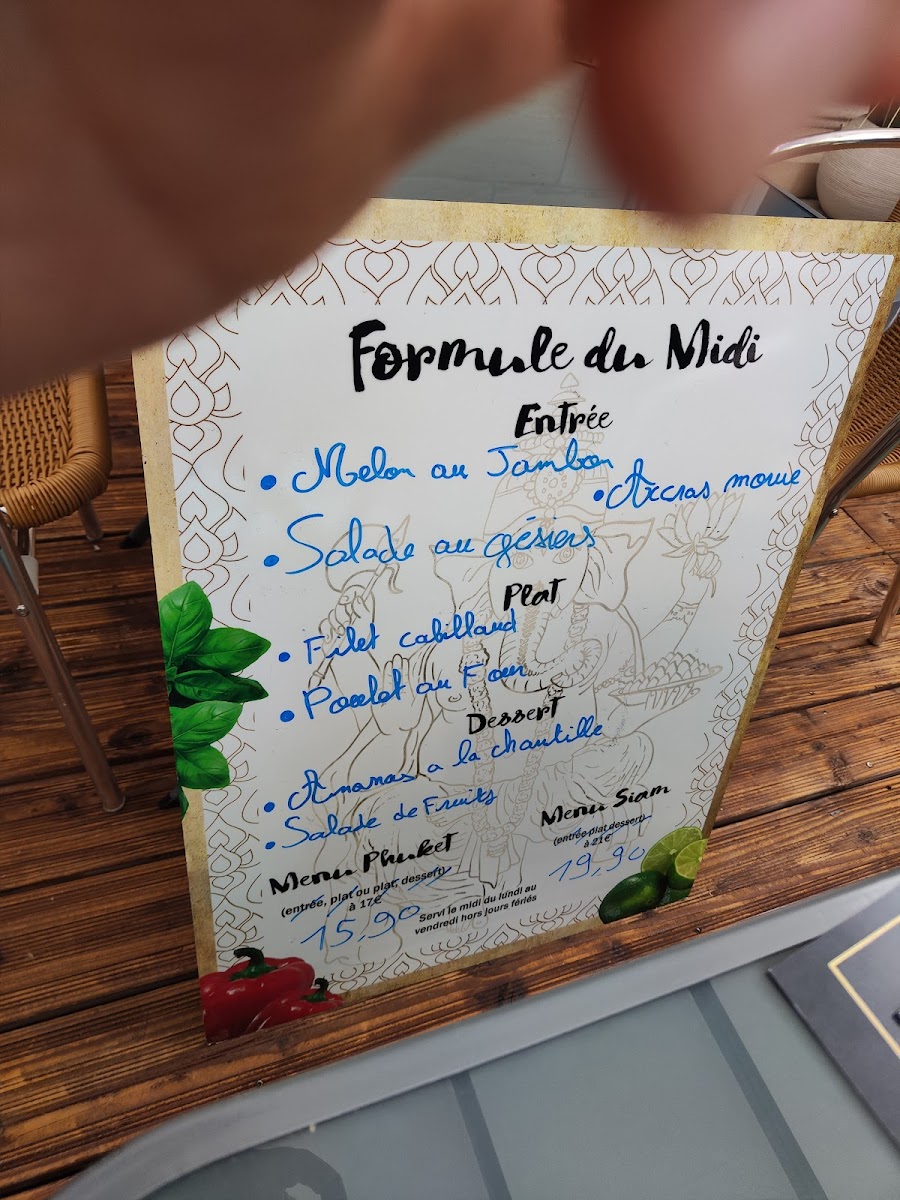 Formule du Midi
Entrée
• Melon au Jambon
• Accras morue
• Salade au gésiers
Plat
• Filet cabillaud
• Poulet au Four
Dessert
• Ananas a la chantille
• Salade de Fruits
Menu Phuket
(entrée, plat ou plat, dessert)
à 17€
15,90
Menu Siam
(entrée plat dessert)
à 21€
19,90
Servi le midi du lundi au
vendredi hors jours fériés